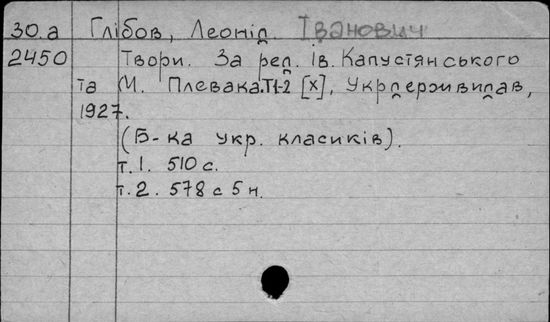 30.а Глібов, Леонід Іванович
2450 Твори. За ред. Ів. Капустянського
та М. Плевака.Т1-2 [Х], Укрдержвидав,
1927.
(Б-ка укр. класиків).
т.1. 510 с.
т.2. 578 с 5 н.